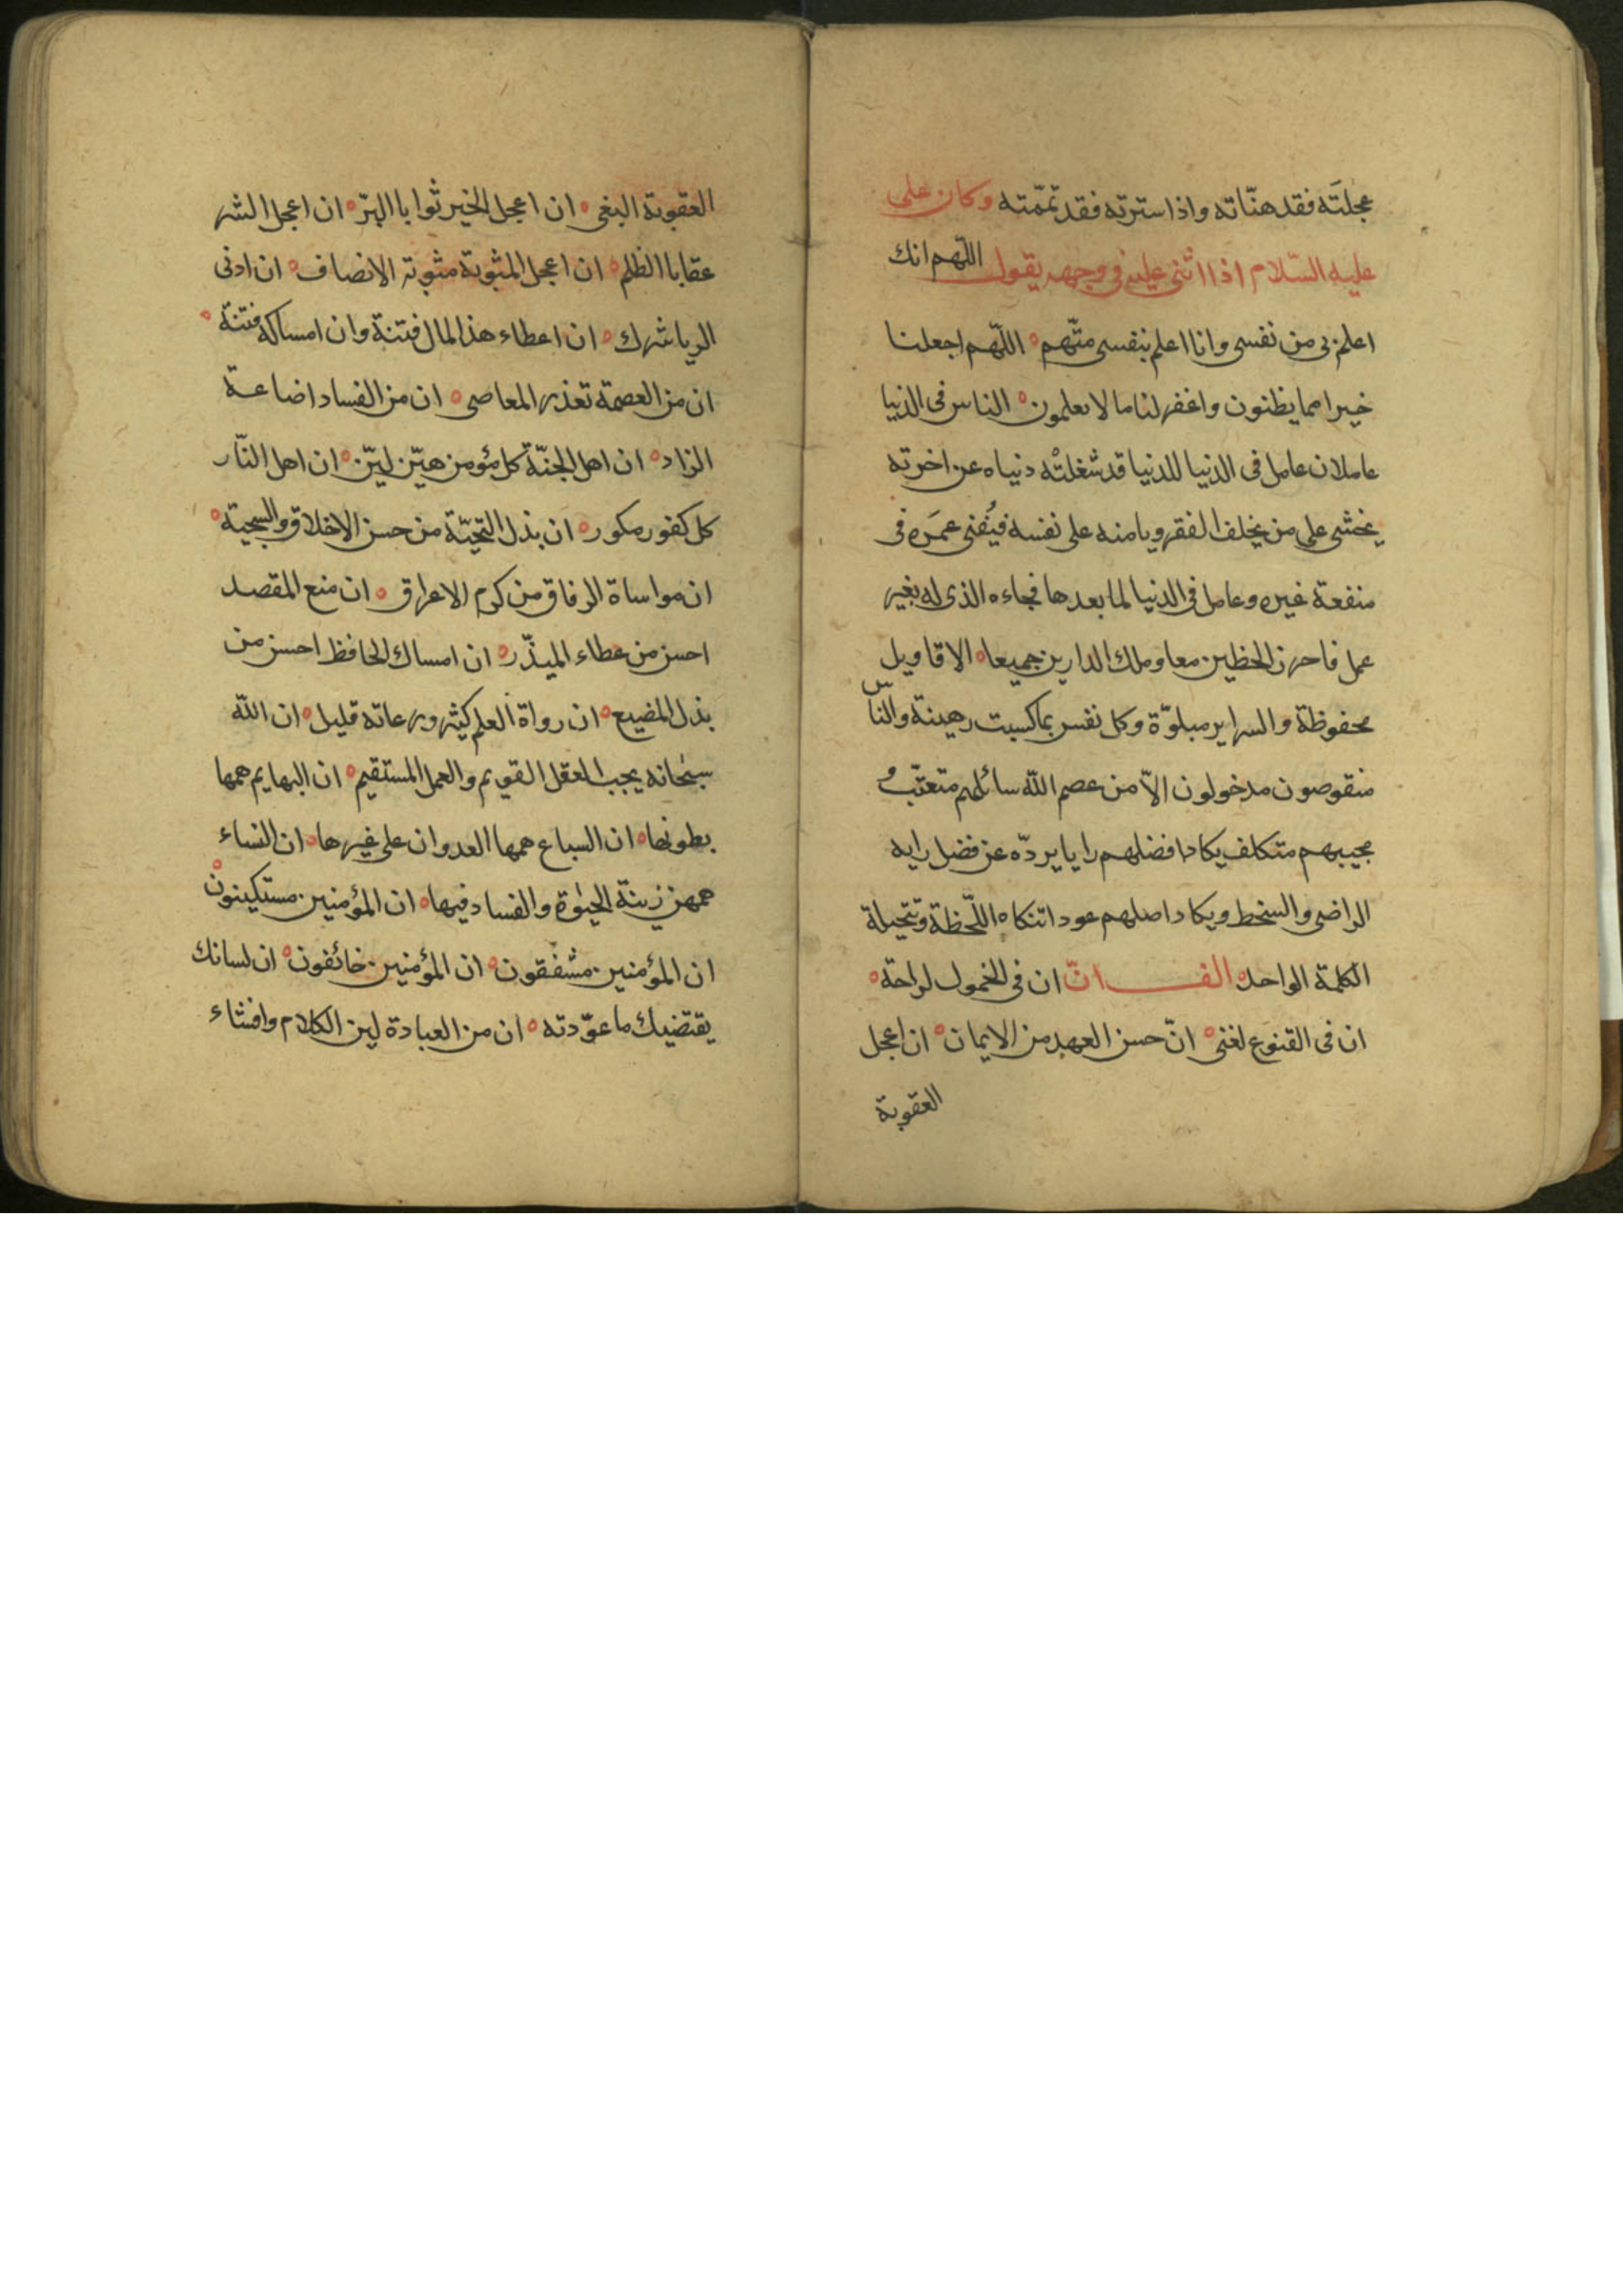 عجلتَه فقد هنّاته واذا سترته فقد تمّمته وكان على
عليه السّلام اذا اثنى عليه فى وجهه يقول اللّهم انك
اعلم بى من نفسى وانا اعلم بنفسى منّهم ه اللّهم اجعلنا
خيرا مما يظنون واغفر لنا ما لا يعلمون ه الناس فى الدنيا
عاملان عامل فى الدنيا للدنيا قد شغلتْه دنياه عن اخرته
يخشى على من يخلف الفقر ويامنه على نفسه فيُفنى عمرَه فى
منفعة غيره وعامل فى الدنيا لما بعدها فجاءه الذى له بغير
عمل فاحرز الحظين معا وملك الدارين جميعا ه الاقاويل
محفوظة والسراير مبلوّة وكل نفس بما كسبت رهينة والناّس
منقوصون مدخولون الاّ من عصم الله سائلهم متعنّت و
مجيبهم متكلف يكاد افضلهم رايا يردّه عن فضل رايه
الراضى والسخط ويكاد اصلهم عودا تنكاه اللّحظة وتتحيلة
الكلمة الواحده الف انّ ان فى الخمول لراحة ه
ان فى القنوع لغنى ه انّ حسن العهد من الايمان ه ان اعجل
العقوبة
العقوبة البغى ه ان اعجل الخير ثوابا البرّ ه ان اعجل الشر
عقابا الظلم ه ان اعجل المثوبة مثوبة الانصاف ه ان ادنى
الريا شرك ه ان اعطاء هذا المال فتنة وان امساكه فتنة ه
ان من العصمة تعذر المعاصى ه ان من الفساد اضاعة
الزاد ه ان اهل الجنّة كل مؤمن هيّن ليّن ه ان اهل النّار
كل كفور مكور ه ان بذل التحيّة من حسن الاخلاق والسجية ه
ان مواساة الرفاق من كرم الاعراق ه ان منع المقصد
احسن من عطاء المبذّر ه ان امساك الحافظ احسن من
بذل المضيع ه ان رواة العلم كثير ورعاته قليل ه ان الله
سبحانه يحب العقل القويم والعمل المستقيم ه ان البهايم همها
بطونها ه ان السباع همها العدوان على غيرها ه ان النساء
همهن زينة الحيوة والفساد فيها ه ان المؤمنين مستكينون ه
ان المؤمنين مشفقون ه ان المؤمنين خائفون ه ان لسانك
يقتضيك ما عوّدته ه ان من العبادة لين الكلام وافشاء